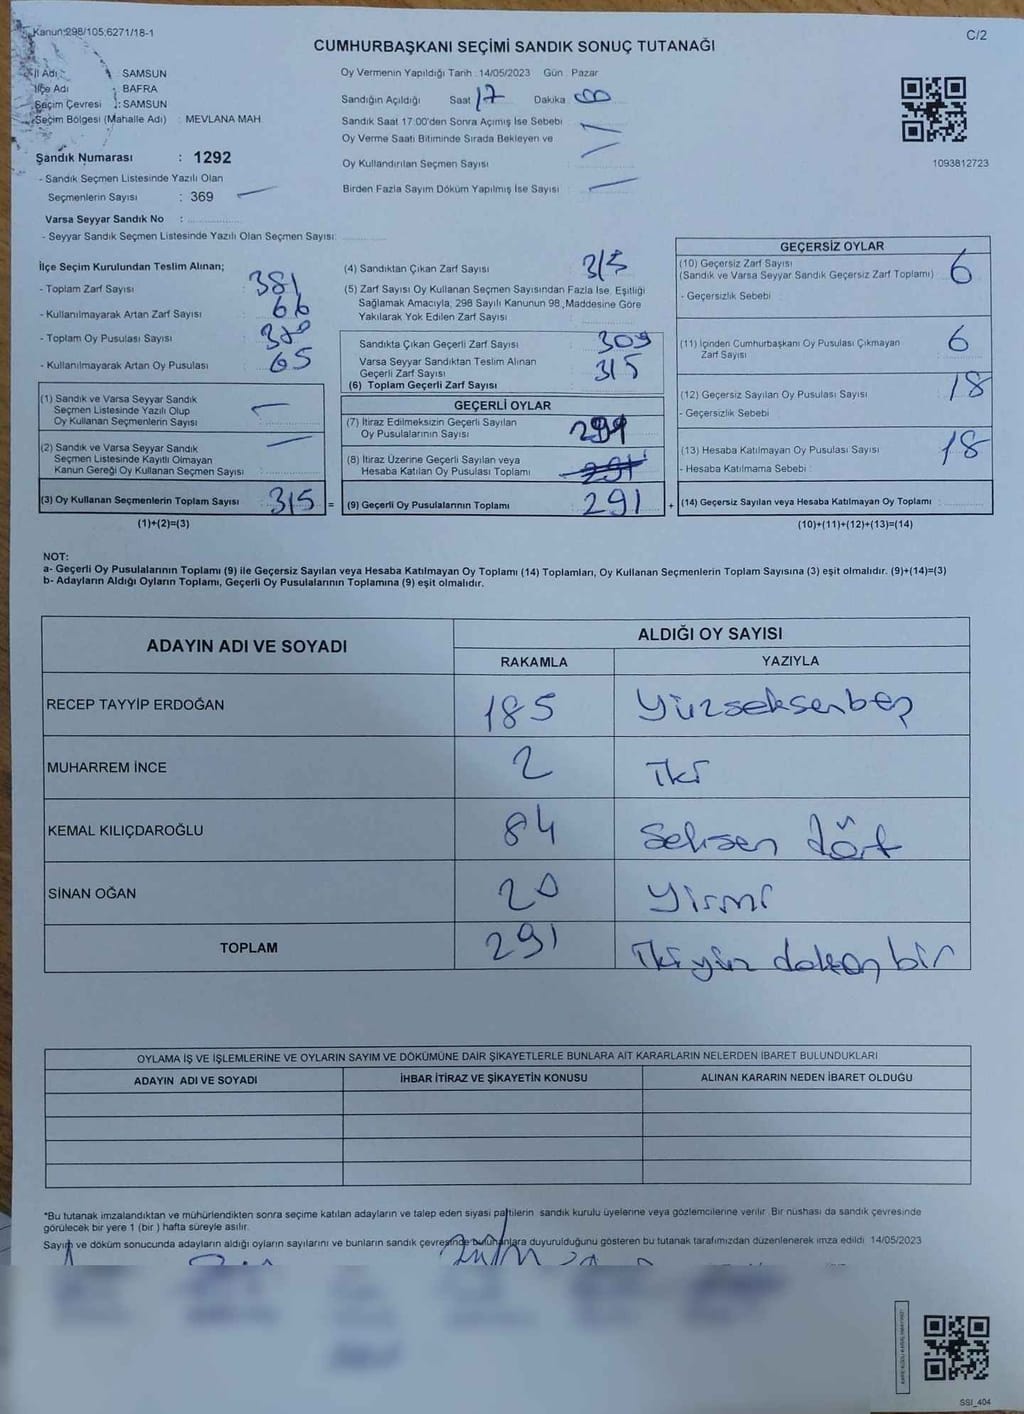 Kanun:298/105,6271/18-1
C/2
CUMHURBAŞKANI SEÇİMİ SANDIK SONUÇ TUTANAĞI
İl Adı : SAMSUN
İlçe Adı : BAFRA
Seçim Çevresi : SAMSUN
Seçim Bölgesi (Mahalle Adı) : MEVLANA MAH.
Şandık Numarası : 1292
- Sandık Seçmen Listesinde Yazılı Olan
Seçmenlerin Sayısı : 369
Varsa Seyyar Sandık No :
- Seyyar Sandık Seçmen Listesinde Yazılı Olan Seçmen Sayısı:
Oy Vermenin Yapıldığı Tarih : 14/05/2023 Gün : Pazar
Sandığın Açıldığı Saat 17 Dakika 00
Sandık Saat 17:00'den Sonra Açımış İse Sebebi
Oy Verme Saati Bitiminde Sırada Bekleyen ve
Oy Kullandırılan Seçmen Sayısı
Birden Fazla Sayım Döküm Yapılmış İse Sayısı
1093812723
İlçe Seçim Kurulundan Teslim Alınan;
- Toplam Zarf Sayısı : 381
- Kullanılmayarak Artan Zarf Sayısı : 66
- Toplam Oy Pusulası Sayısı : 380
- Kullanılmayarak Artan Oy Pusulası : 65
(1) Sandık ve Varsa Seyyar Sandık
Seçmen Listesinde Yazılı Olup
Oy Kullanan Seçmenlerin Sayısı
(2) Sandık ve Varsa Seyyar Sandık
Seçmen Listesinde Kayıtlı Olmayan
Kanun Gereği Oy Kullanan Seçmen Sayısı
(3) Oy Kullanan Seçmenlerin Toplam Sayısı 315 =
(1)+(2)=(3)
(4) Sandıktan Çıkan Zarf Sayısı : 315
(5) Zarf Sayısı Oy Kullanan Seçmen Sayısından Fazla İse, Eşitliği
Sağlamak Amacıyla, 298 Sayılı Kanunun 98.Maddesine Göre
Yakılarak Yok Edilen Zarf Sayısı
Sandıkta Çıkan Geçerli Zarf Sayısı : 309
Varsa Seyyar Sandıktan Teslim Alınan
Geçerli Zarf Sayısı : 315
(6) Toplam Geçerli Zarf Sayısı
GEÇERLİ OYLAR
(7) İtiraz Edilmeksizin Geçerli Sayılan
Oy Pusulalarının Sayısı : 291
(8) İtiraz Üzerine Geçerli Sayılan veya
Hesaba Katılan Oy Pusulası Toplamı : 291
(9) Geçerli Oy Pusulalarının Toplamı 291 +
GEÇERSİZ OYLAR
(10) Geçersiz Zarf Sayısı
(Sandık ve Varsa Seyyar Sandık Geçersiz Zarf Toplamı) : 6
- Geçersizlik Sebebi :
(11) İçinden Cumhurbaşkanı Oy Pusulası Çıkmayan
Zarf Sayısı : 6
(12) Geçersiz Sayılan Oy Pusulası Sayısı : 18
- Geçersizlik Sebebi
(13) Hesaba Katılmayan Oy Pusulası Sayısı : 18
- Hesaba Katılmama Sebebi :
(14) Geçersiz Sayılan veya Hesaba Katılmayan Oy Toplamı
(10)+(11)+(12)+(13)=(14)
NOT:
a- Geçerli Oy Pusulalarının Toplamı (9) ile Geçersiz Sayılan veya Hesaba Katılmayan Oy Toplamı (14) Toplamları, Oy Kullanan Seçmenlerin Toplam Sayısına (3) eşit olmalıdır. (9)+(14)=(3)
b- Adayların Aldığı Oyların Toplamı, Geçerli Oy Pusulalarının Toplamına (9) eşit olmalıdır.
ADAYIN ADI VE SOYADI ALDIĞI OY SAYISI
RAKAMLA YAZIYLA
RECEP TAYYİP ERDOĞAN 185 Yüzseksenbeş
MUHARREM İNCE 2 İki
KEMAL KILIÇDAROĞLU 84 Seksen dört
SİNAN OĞAN 20 Yirmi
TOPLAM 291 İkiyüz doksan bir
OYLAMA İŞ VE İŞLEMLERİNE VE OYLARIN SAYIM VE DÖKÜMÜNE DAİR ŞİKAYETLERLE BUNLARA AİT KARARLARIN NELERDEN İBARET BULUNDUKLARI
ADAYIN ADI VE SOYADI İHBAR İTİRAZ VE ŞİKAYETİN KONUSU ALINAN KARARIN NEDEN İBARET OLDUĞU
*Bu tutanak imzalandıktan ve mühürlendikten sonra seçime katılan adayların ve talep eden siyasi partilerin sandık kurulu üyelerine veya gözlemcilerine verilir. Bir nüshası da sandık çevresinde
görülecek bir yere 1 (bir ) hafta süreyle asılır.
Sayım ve döküm sonucunda adayların aldığı oyların sayılarını ve bunların sandık çevresinde bulunanlara duyurulduğunu gösteren bu tutanak tarafımızdan düzenlenerek imza edildi. 14/05/2023
SSI_404